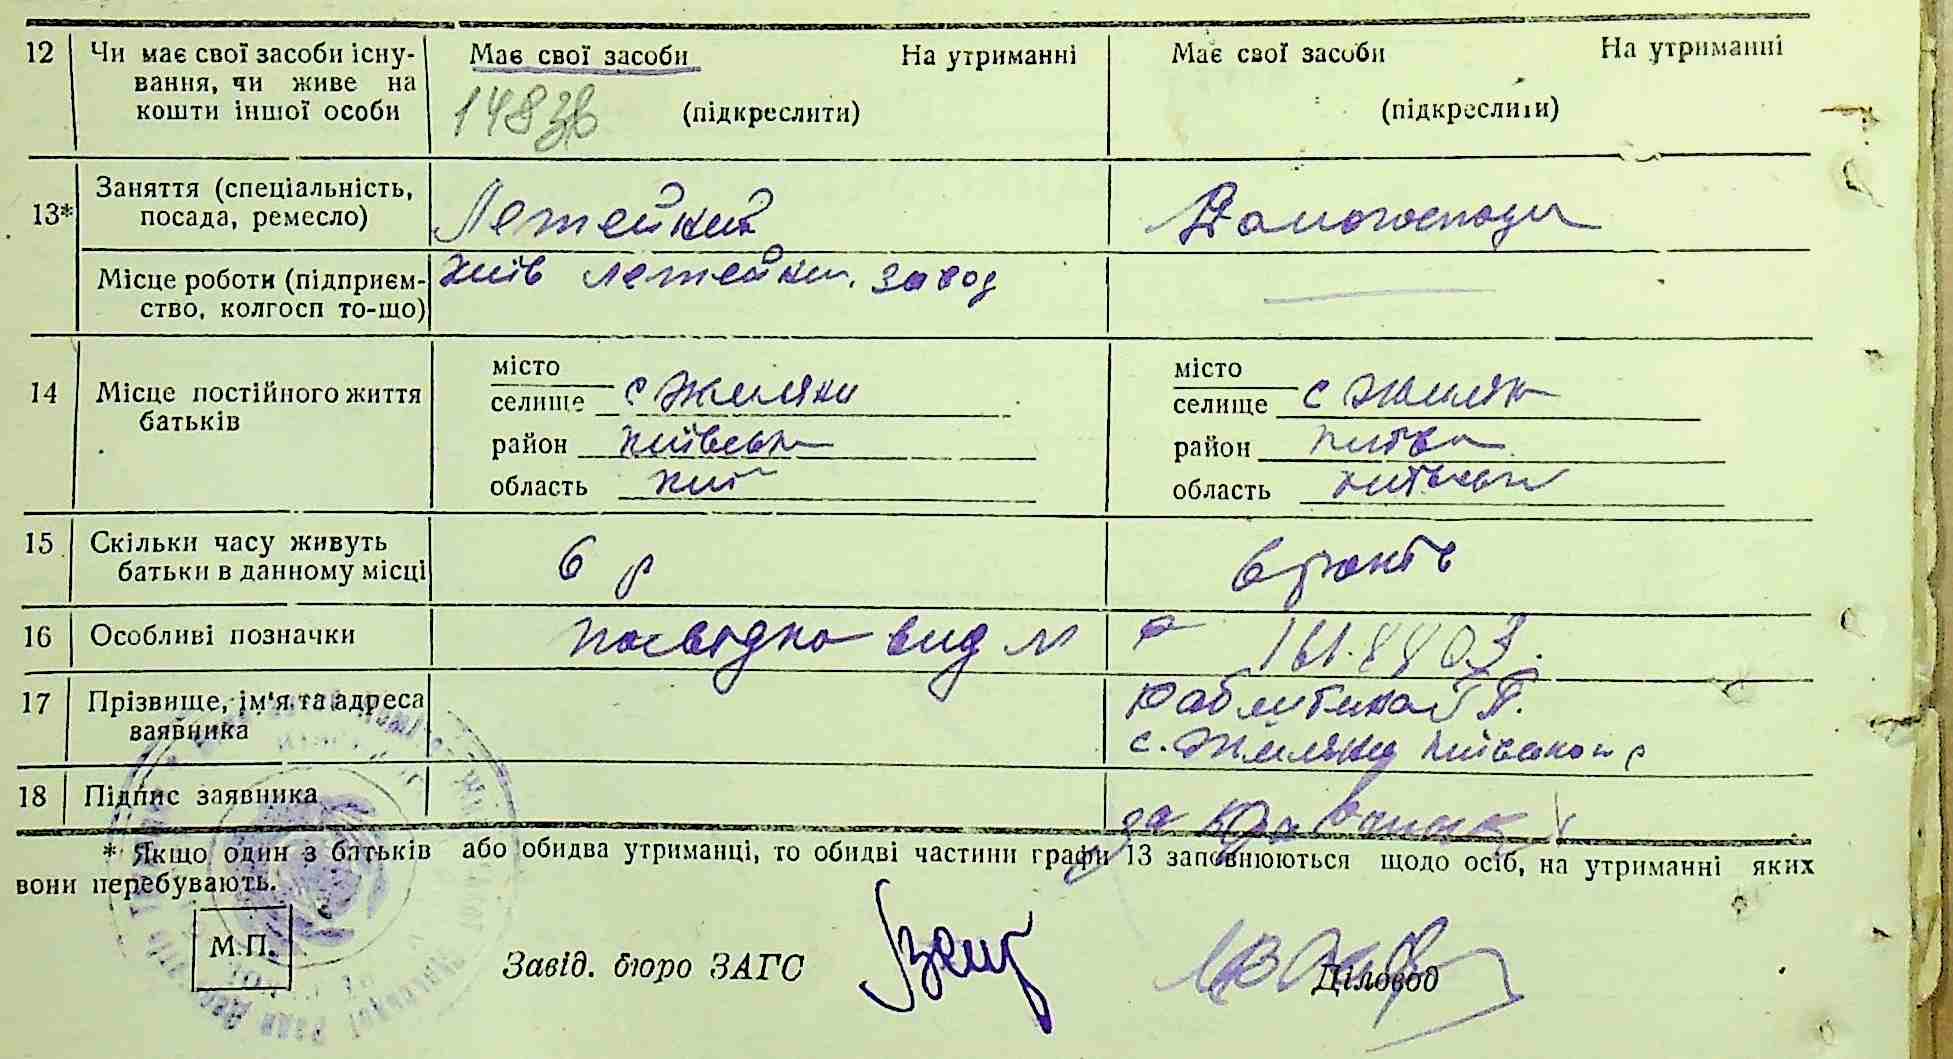 12 Чи має свої засоби існу- Має свої засоби На утриманні Має свої засоби На утриманні
вання, чи живе на
кошти іншої особи 1483в (підкреслити) (підкреслити)
Заняття (спеціальність,
13* посада, ремесло) Летейний Домогосподи
Місце роботи (підприєм- Київ летейн. завод
ство, колгосп то-що)
місто місто
14 Місце постійного життя селище с Жиляни селище с Жилян
батьків район Київськ район Київ
область Киї область Київськ
15 Скільки часу живуть 6 р 6 років
батьки в данному місці
16 Особливі позначки посвідка вид 161.8803.
17 Прізвище, ім'я та адреса Т.
заявника с. Жиляни Київського р
18 Підпис заявника за
* Якщо один з батьків або обидва утриманці, то обидві частини графи 13 заповнюються щодо осіб, на утриманні яких
вони перебувають.
М.П. Завід. бюро ЗАГС Діловод